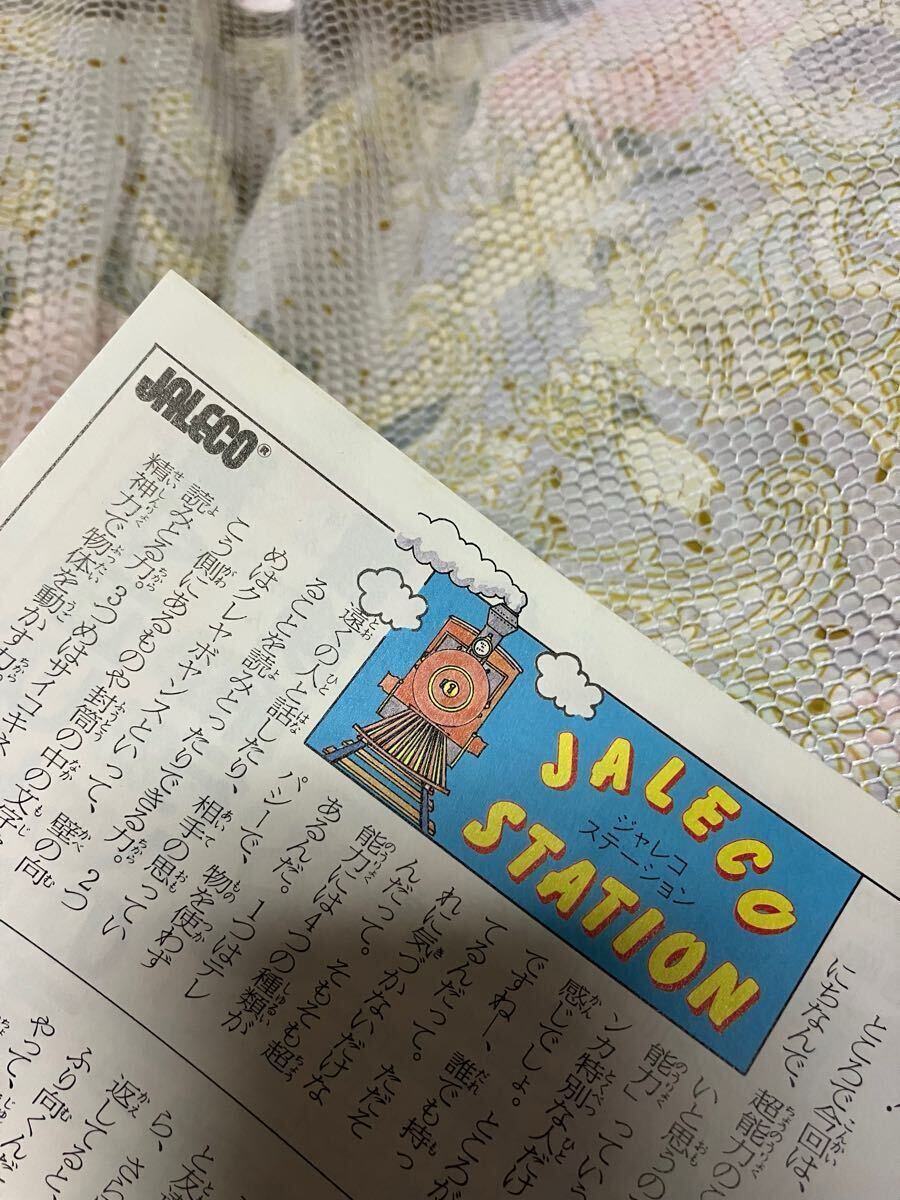 JALECO®
JALECO
ジャレコ
ステーション
STATION
ところで今回は、
にちなんで、超能力の
いと思うの
能力」
っていう
ンカ特別な人だけ
感じでしょ。ところが
ですねー、誰でも持っ
てるんだって。ただそ
れに気づかないだけな
んだって。そもそも超
能力には4つの種類が
あるんだ。1つはテレ
パシーで、物を使わず
遠くの人と話したり、相手の思ってい
ることを読みとったりできる力。2つ
めはクレヤボヤンスといって、壁の向
こう側にあるものや封筒の中の文字
読みとる力。3つめはサイコキネ
精神力で物体を動かす力。
と友達
ら、さら
返してると、
ふり向くんだ
やって、